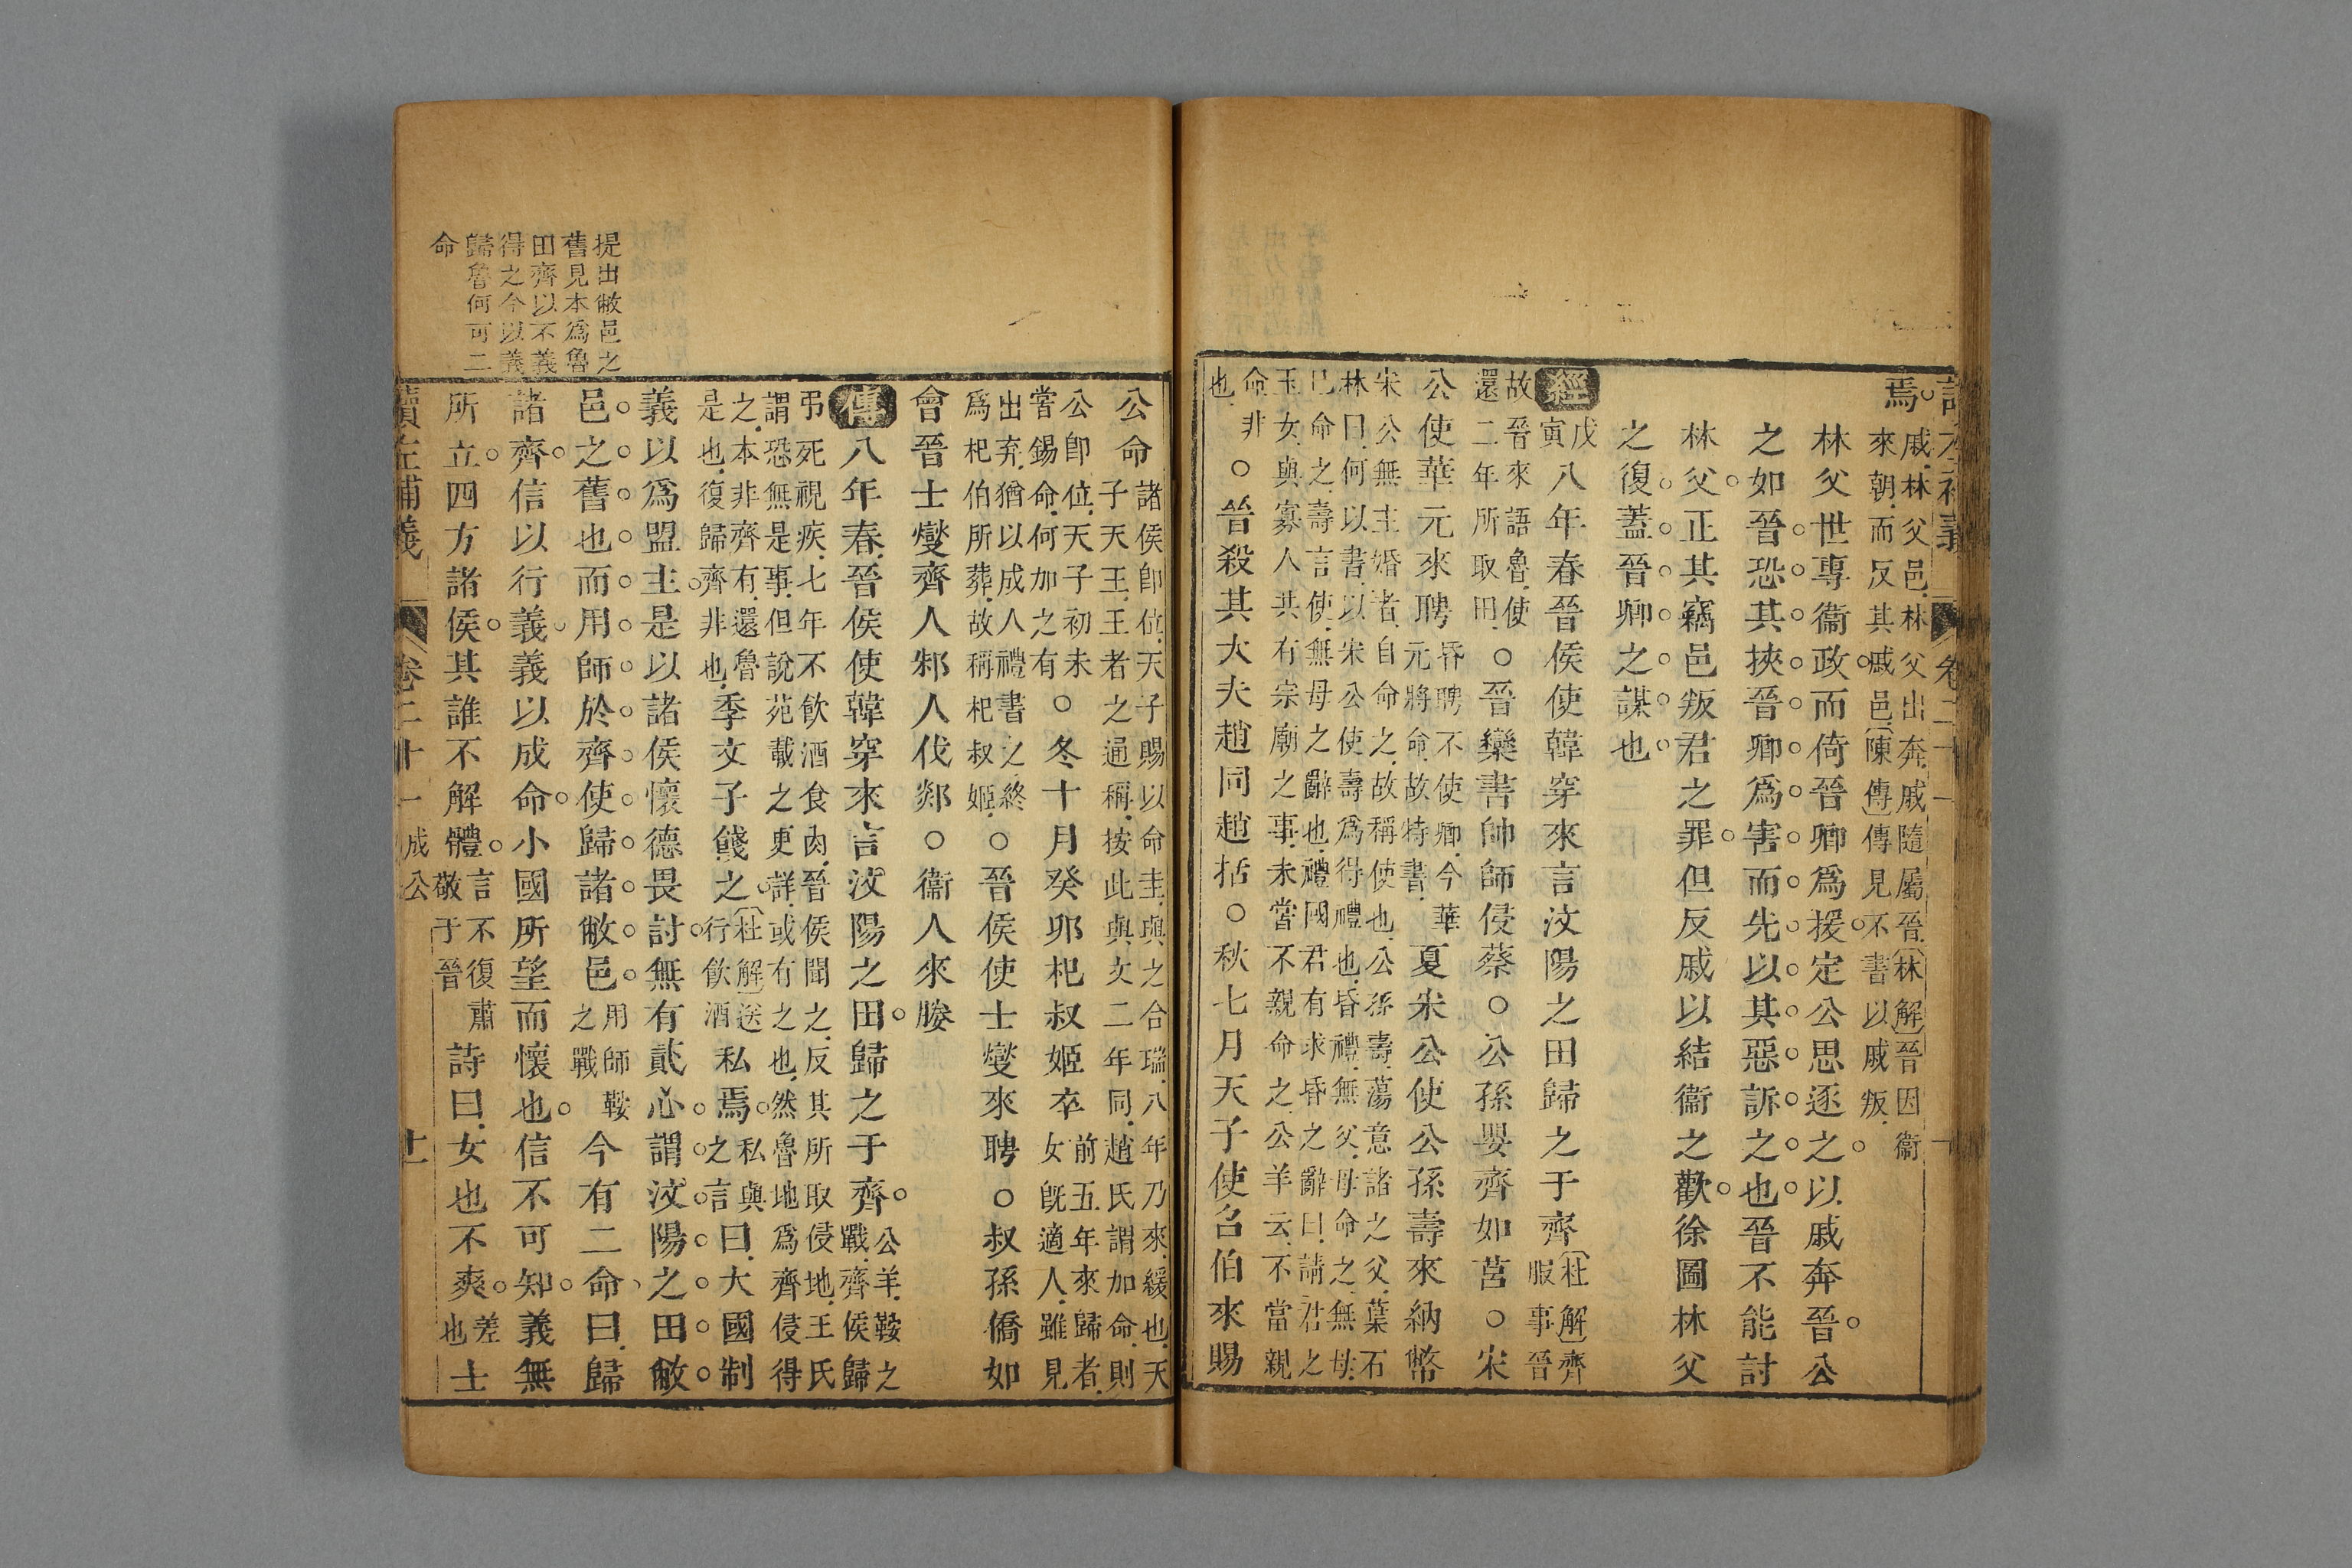 焉戚林父邑林父出奔戚隨屬晉〔林解〕晉因衞
來朝而反其戚邑〔陳傳〕傳見不書以戚叛
林父世專衞政而倚晉卿爲援定公思逐之以戚奔晉公
之如晉恐其挾晉卿爲害而先以其惡訴之也晉不能討
林父正其竊邑叛君之罪但反戚以結衞之歡徐圖林父
之復蓋晉卿之謀也
經戊寅八年春晉侯使韓穿來言汶陽之田歸之于齊〔杜解〕齊服事晉
故晉來語魯使還二年所取田○晉欒書帥師侵蔡○公孫嬰齊如莒○宋
公使華元來聘昏聘不使卿今華元將命故特書夏宋公使公孫壽來納幣
宋公無主婚者自命之故稱使也公孫壽蕩意諸之父葉石
林曰何以書以宋公使壽爲得禮也昏禮無父母命之無母
巳命之壽言使無母之辭也禮國君有求昏之辭曰請君之
玉女與寡人共有宗廟之事未嘗不親命之公羊云不當親
命非也○晉殺其大夫趙同趙括○秋七月天子使召伯來賜
公命諸侯卽位天子賜以命圭與之合瑞八年乃來緩也天
子天王王者之通稱按此與文二年同趙氏謂加命則
公卽位天子初未嘗錫命何加之有○冬十月癸卯杞叔姬卒前五年來歸者女旣適人雖見
出弃猶以成人禮書之終爲杞伯所葬故稱杞叔姬○晉侯使士燮來聘○叔孫僑如
會晉士燮齊人邾人伐郯○衞人來媵
傳八年春晉侯使韓穿來言汶陽之田歸之于齊公羊鞍之戰齊侯歸
弔死視疾七年不飲酒食肉晉侯聞之反其所取侵地王氏
謂恐無是事但說苑載之更詳或有之也然魯地爲齊侵得
之本非齊有還魯是也復歸齊非也季文子餞之〔杜解〕送行飲酒私焉私與之言曰大國制
義以爲盟主是以諸侯懷德畏討無有貳心謂汶陽之田敝
邑之舊也而用師於齊使歸諸敝邑用師鞍之戰今有二命曰歸
諸齊信以行義義以成命小國所望而懷也信不可知義無
所立四方諸侯其誰不解體言不復肅敬于晉詩曰女也不爽差也士
提出敝邑之
舊見本爲魯
田齊以不義
得之今以義
歸魯何可二
命
讀左補義 卷二十一 成公 十一